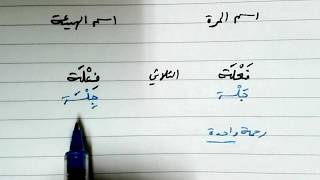 اسم المرة    اسم الهيئة
فَعْلَة    الثلاثي    فِعْلَة
جَلْسَة    جِلْسَة
رحمة واحدة